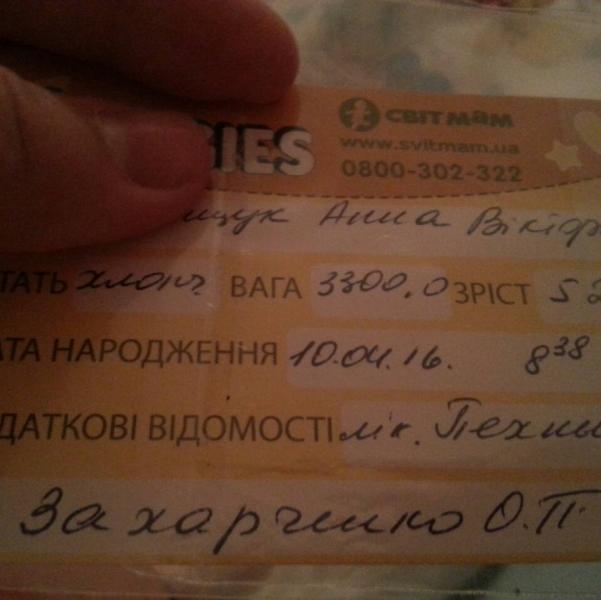 IES СВІТ МАМ
www.svitmam.ua
0800-302-322
щук Анна Вікіф
ТАТЬ хлопч ВАГА 3300,0 ЗРІСТ 52
АТА НАРОДЖЕННЯ 10.04.16. 8 38
ДАТКОВІ ВІДОМОСТІ лік.
Захарченко О.П.